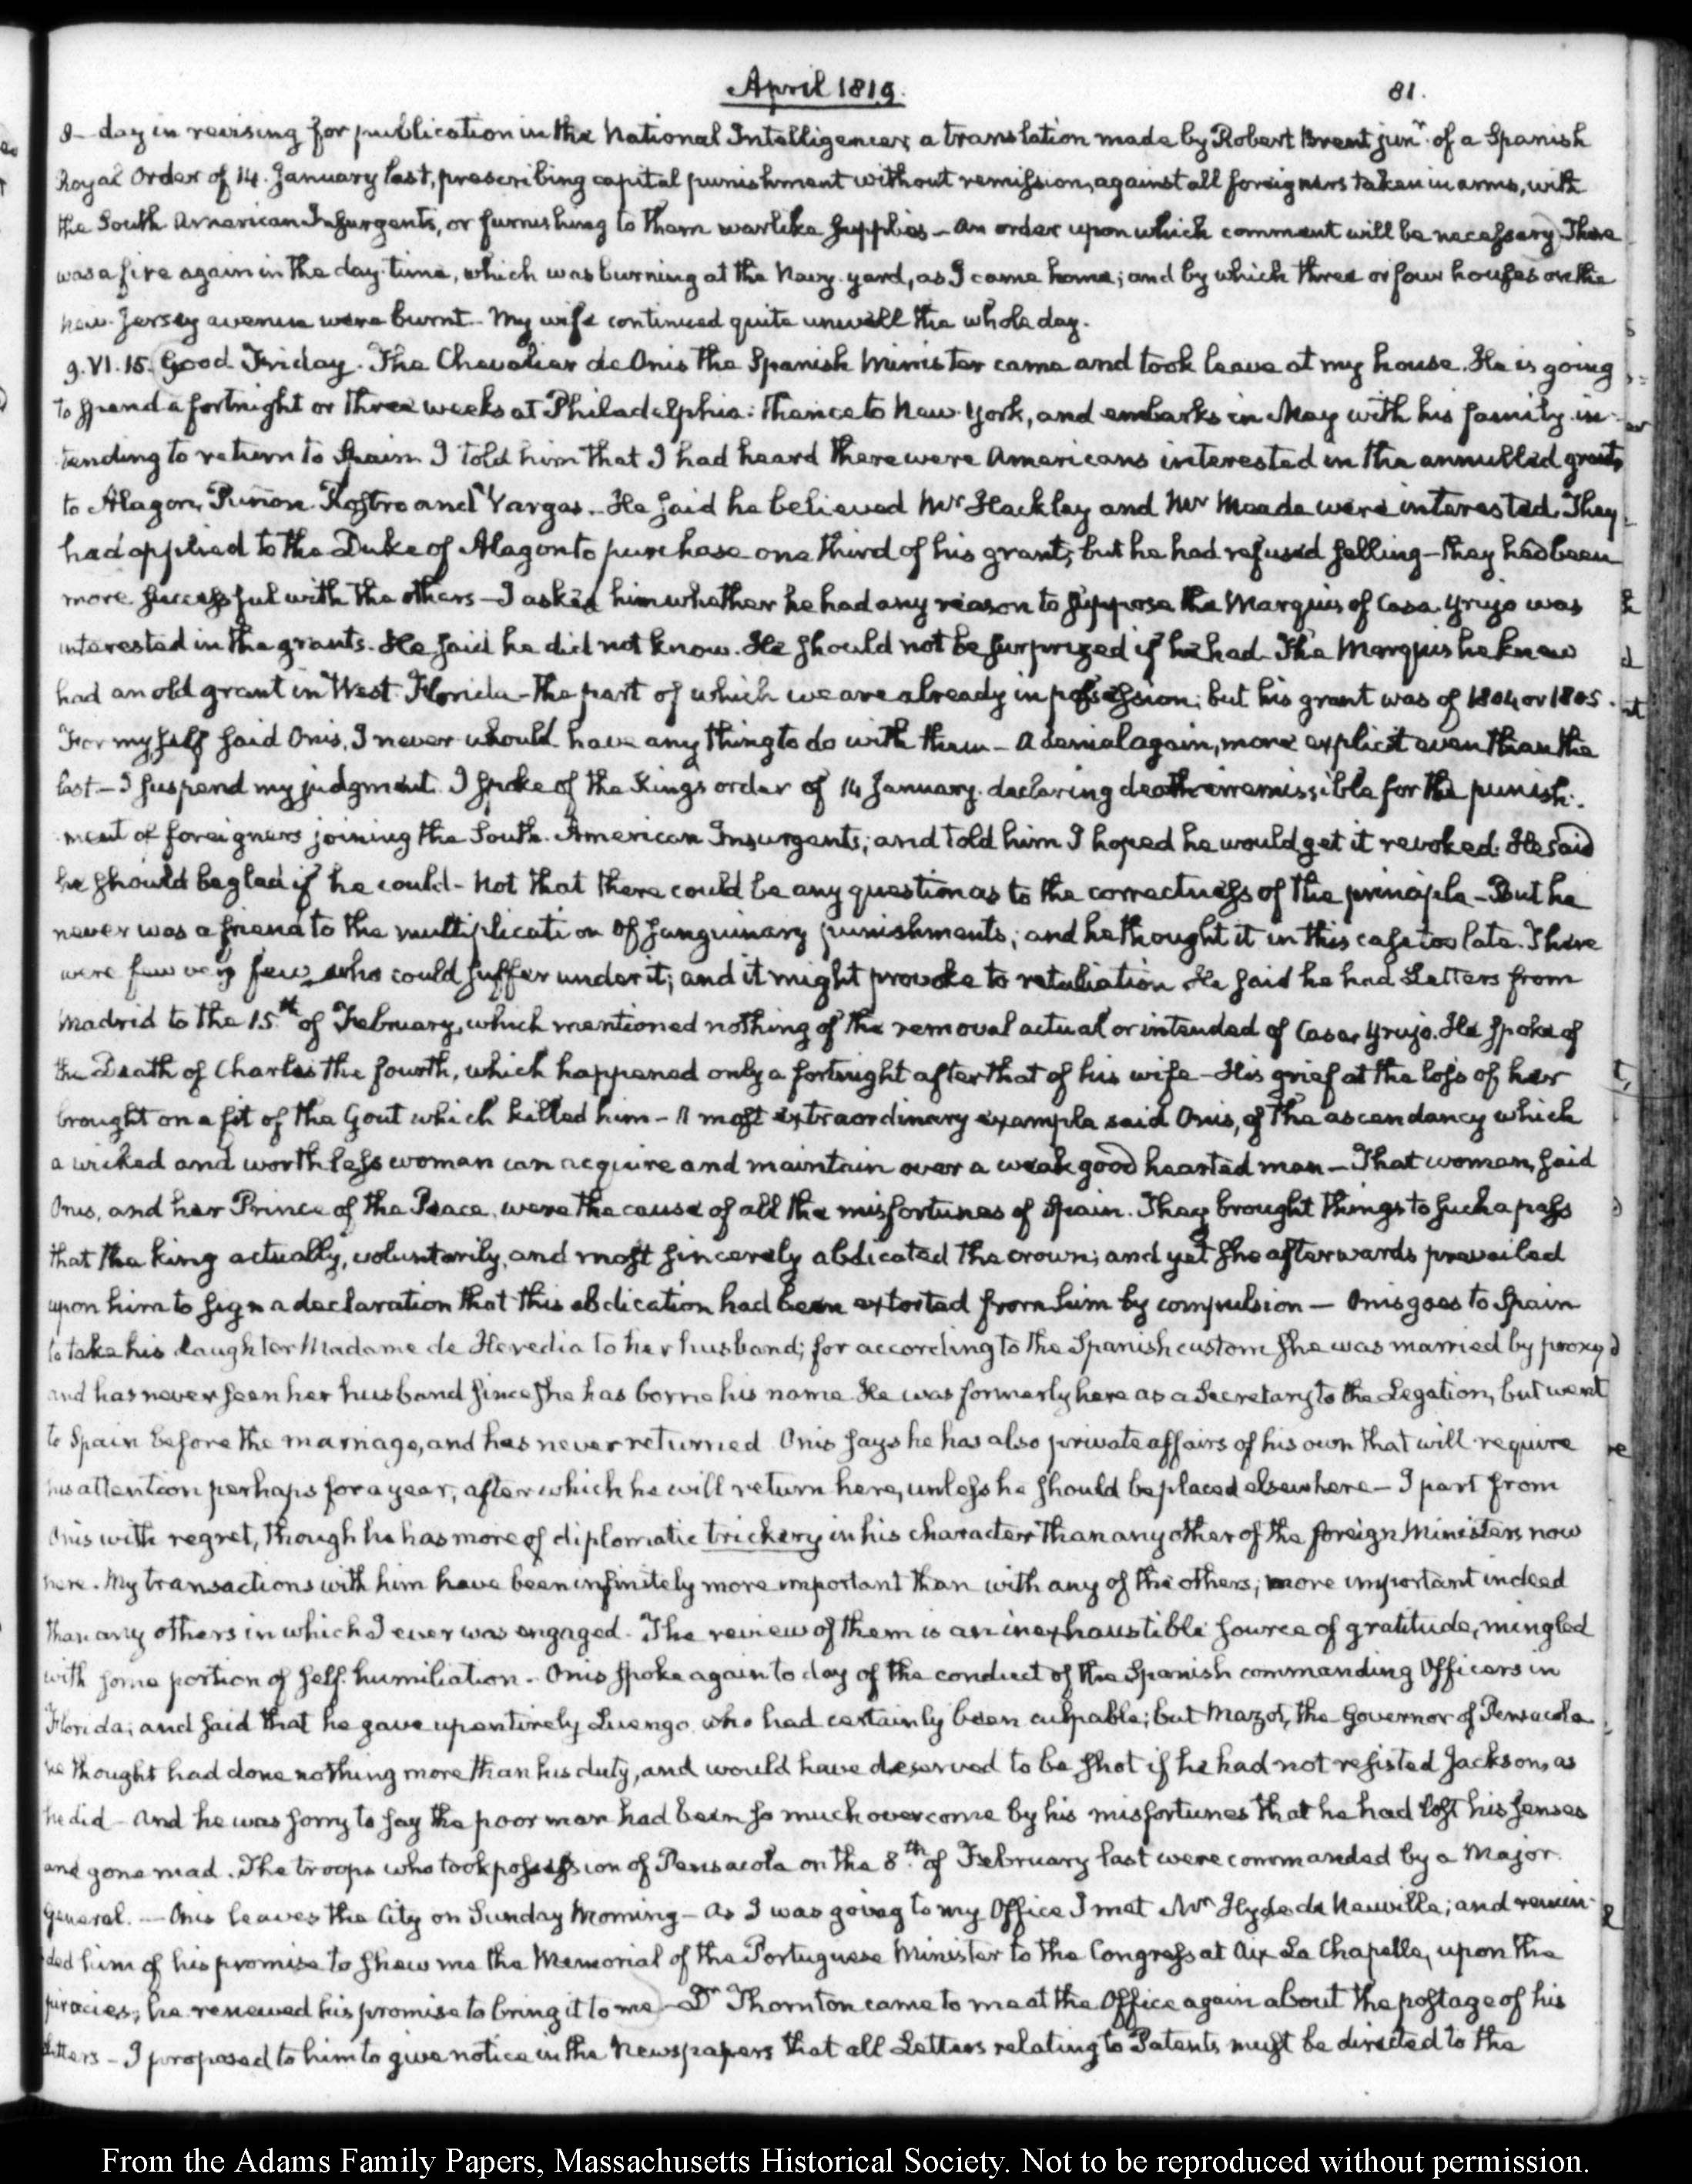 April 1819.
81.
I — day in revising for publication in the National Intelligencer, a translation made by Robert Brent junr. of a Spanish
Royal Order of 14. January last, prescribing capital punishment without remission, against all foreigners taken in arms, with
the South American Insurgents, or furnishing to them warlike supplies — An order upon which comment will be necessary. There
was a fire again in the day-time, which was burning at the Navy-yard, as I came home; and by which three or four houses on the
new-Jersey avenue were burnt. My wife continued quite unwell the whole day.
9. VI. 15. Good Friday. The Chevalier de Onis the Spanish Minister came and took leave at my house. He is going
to spend a fortnight or three weeks at Philadelphia: thence to New-York, and embarks in May with his family in-
tending to return to Spain. I told him that I had heard there were Americans interested in the annulled grants
to Alagon, Puñon Rostro and Vargas. He said he believed Mr Hackley and Mr Meade were interested. They
had applied to the Duke of Alagon to purchase one third of his grant; but he had refused selling — they had been
more successful with the others — I asked him whether he had any reason to suppose the Marquis of Casa Yrujo was
interested in the grants. He said he did not know. He should not be surprized if he had. The Marquis he knew
had an old grant in West-Florida — the part of which we are already in possession; but his grant was of 1804 or 1805.
For myself said Onis, I never would have any thing to do with them — A denial again, more explicit even than the
last — I suspend my judgment. I spoke of the King's order of 14 January. declaring death irremissible for the punish-
ment of foreigners joining the South-American Insurgents; and told him I hoped he would get it revoked. He said
he should be glad if he could — Not that there could be any question as to the correctness of the principle — But he
never was a friend to the multiplication of sanguinary punishments; and he thought it in this case too late. There
were few very few who could suffer under it; and it might provoke to retaliation. He said he had Letters from
Madrid to the 15.th of February, which mentioned nothing of the removal actual or intended of Casa-Yrujo. He spoke of
the Death of Charles the fourth, which happened only a fortnight after that of his wife — His grief at the loss of her
brought on a fit of the Gout which killed him — A most extraordinary example said Onis, of the ascendancy which
a wicked and worthless woman can acquire and maintain over a weak good hearted man — That woman, said
Onis, and her Prince of the Peace, were the cause of all the misfortunes of Spain. They brought things to such a pass
that the king actually, voluntarily, and most sincerely abdicated the crown; and yet she afterwards prevailed
upon him to sign a declaration that this abdication had been extorted from him by compulsion — Onis goes to Spain
to take his daughter Madame de Heredia to her husband; for according to the Spanish custom she was married by proxy
and has never seen her husband since she has borne his name. He was formerly here as a Secretary to the Legation, but went
to Spain before the marriage, and has never returned. Onis says he has also private affairs of his own that will require
his attention perhaps for a year, after which he will return here, unless he should be placed elsewhere — I part from
Onis with regret, though he has more of diplomatic trickery in his character than any other of the foreign Ministers now
here. My transactions with him have been infinitely more important than with any of the others; more important indeed
than any others in which I ever was engaged. The review of them is an inexhaustible source of gratitude, mingled
with some portion of self-humiliation. Onis spoke again to day of the conduct of the Spanish commanding Officers in
Florida; and said that he gave up entirely Luengo, who had certainly been culpable; but Mazot, the Governor of Pensacola
he thought had done nothing more than his duty, and would have deserved to be shot if he had not resisted Jackson, as
he did — and he was sorry to say the poor man had been so much overcome by his misfortunes that he had lost his senses
and gone mad. The troops who took possession of Pensacola on the 8.th of February last were commanded by a Major
General. — Onis leaves the City on Sunday Morning — As I was going to my Office I met Mr Hyde de Neuville; and remin-
ded him of his promise to shew me the Memorial of the Portuguese Minister to the Congress at Aix La Chapelle, upon the
piracies; he renewed his promise to bring it to me — Dr Thornton came to me at the Office again about the postage of his
letters — I proposed to him to give notice in the Newspapers that all Letters relating to Patents must be directed to the
From the Adams Family Papers, Massachusetts Historical Society. Not to be reproduced without permission.